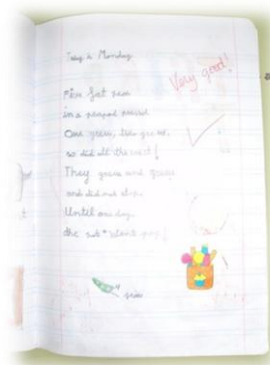 Today is Monday
Very good!
Five fat peas
in a peapod pressed
One grew, two grew,
so did all the rest!
They grew and grew
and did not stop.
Until one day,
the pod went pop!
peas